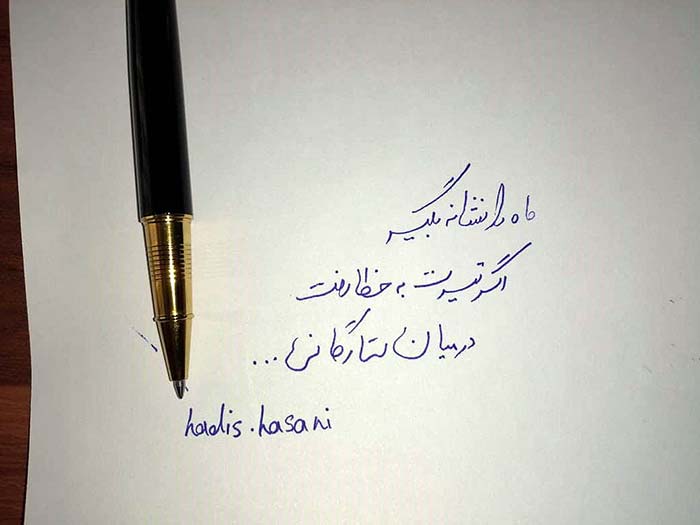 ماه را نشانه بگیر
اگر تیرت به خطا رفت
در میان ستارگانی...
hadis.hasani